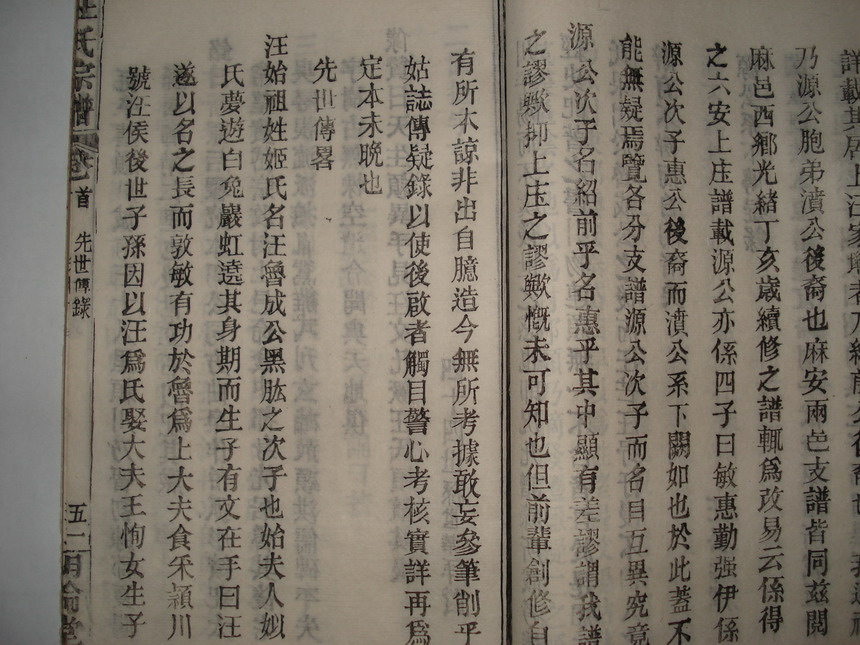 詳載其居上汪家
乃源公胞弟濆公後裔也麻安兩邑支譜皆同茲閱
麻邑西鄉光緒丁亥歲續修之譜輒爲改易云係得
之六安上庄譜載源公亦係四子曰敏惠勤强伊係
源公次子惠公後裔而濆公系下闕如也於此蓋不
能無疑焉覽各分支譜源公次子而名目互異究竟
源公次子名紹前乎名惠乎其中顯有差謬謂我譜
之謬歟抑上庄之謬歟慨未可知也但前輩創修自
有所本諒非出自臆造今無所考據敢妄參筆削乎
姑誌傳疑錄以使後啟者觸目警心考核實詳再爲
定本未晚也
先世傳畧
汪始祖姓姬氏名汪魯成公黑肱之次子也始夫人姒
氏夢遊白兔巖虹遶其身期而生子有文在手曰汪
遂以名之長而敦敏有功於魯爲上大夫食采潁川
號汪侯後世子孫因以汪爲氏娶大夫王恂女生子
氏宗譜 卷首 先世傳錄 五一 明倫堂